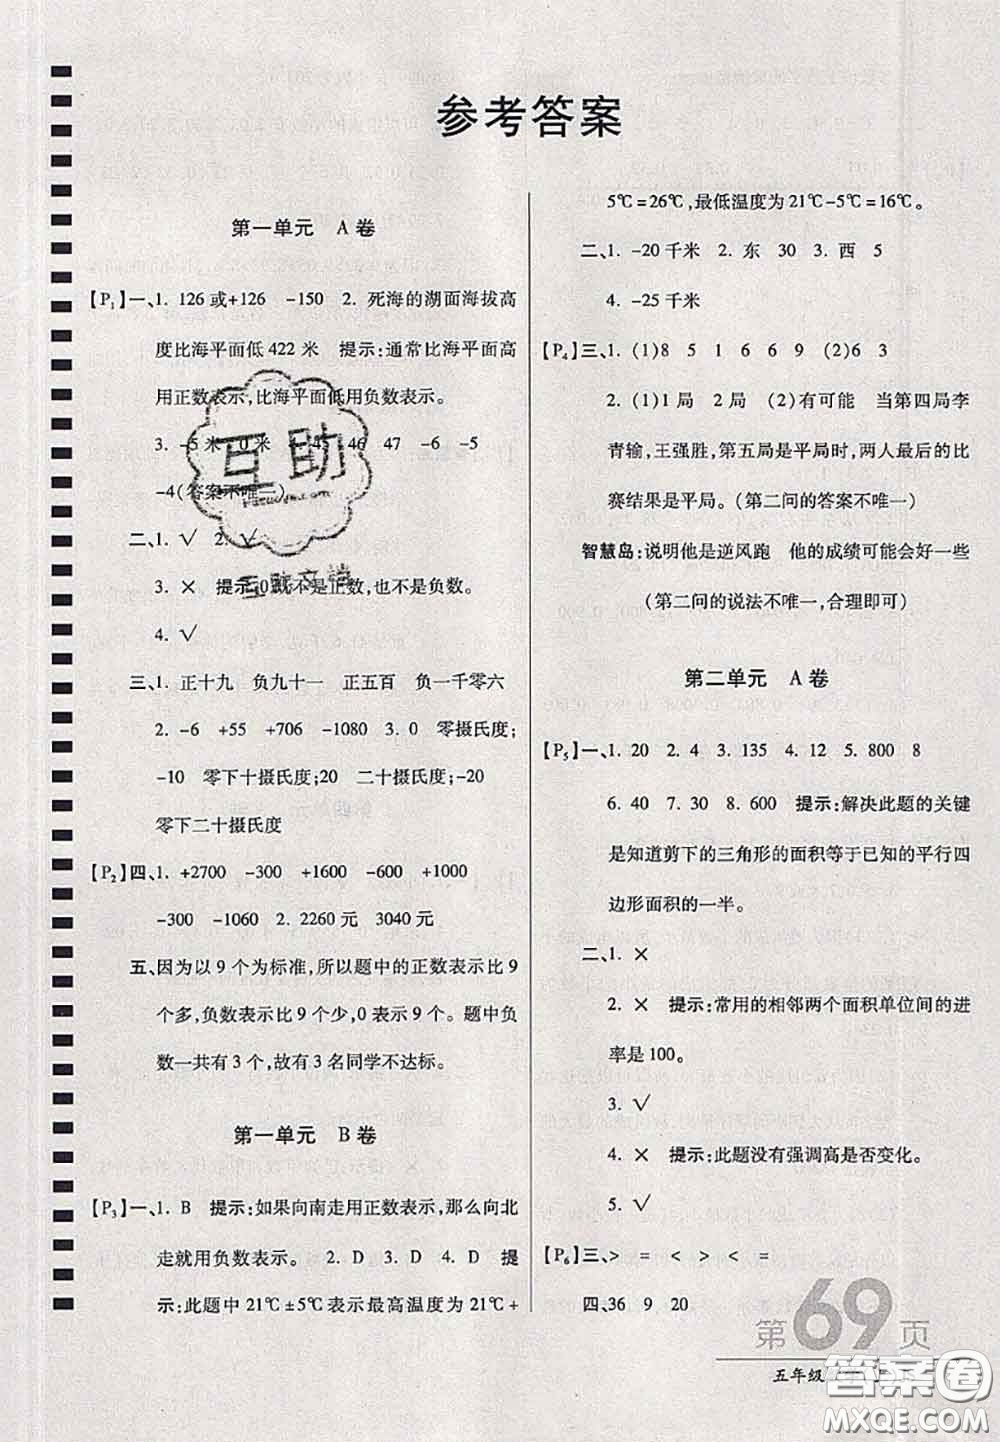 参考答案
第一单元 A卷
【P₁】一、1. 126或+126 -150 2. 死海的湖面海拔高
度比海平面低422米 提示:通常比海平面高
用正数表示,比海平面低用负数表示。
3. -5米 0米 45 46 47 -6 -5
-4(答案不唯一)
二、1. √ 2. √
3. × 提示:0既不是正数,也不是负数。
4. √
三、1. 正十九 负九十一 正五百 负一千零六
2. -6 +55 +706 -1080 3. 0 零摄氏度;
-10 零下十摄氏度;20 二十摄氏度;-20
零下二十摄氏度
【P₂】四、1. +2700 -300 +1600 -600 +1000
-300 -1060 2. 2260元 3040元
五、因为以9个为标准,所以题中的正数表示比9
个多,负数表示比9个少,0表示9个。题中负
数一共有3个,故有3名同学不达标。
第一单元 B卷
【P₃】一、1. B 提示:如果向南走用正数表示,那么向北
走就用负数表示。 2. D 3. D 4. D 提
示:此题中21℃±5℃表示最高温度为21℃+
5℃=26℃,最低温度为21℃-5℃=16℃。
二、1. -20千米 2. 东 30 3. 西 5
4. -25千米
【P₄】三、1. (1)8 5 1 6 6 9 (2)6 3
2. (1)1局 2局 (2)有可能 当第四局李
青输,王强胜,第五局是平局时,两人最后的比
赛结果是平局。(第二问的答案不唯一)
智慧岛:说明他是逆风跑 他的成绩可能会好一些
(第二问的说法不唯一,合理即可)
第二单元 A卷
【P₅】一、1. 20 2. 4 3. 135 4. 12 5. 800 8
6. 40 7. 30 8. 600 提示:解决此题的关键
是知道剪下的三角形的面积等于已知的平行四
边形面积的一半。
二、1. ×
2. × 提示:常用的相邻两个面积单位间的进
率是100。
3. √
4. × 提示:此题没有强调高是否变化。
5. √
【P₆】三、> = < > < =
四、36 9 20
第69页
五年级
互助
互助文学
答案卷
MXQE.COM